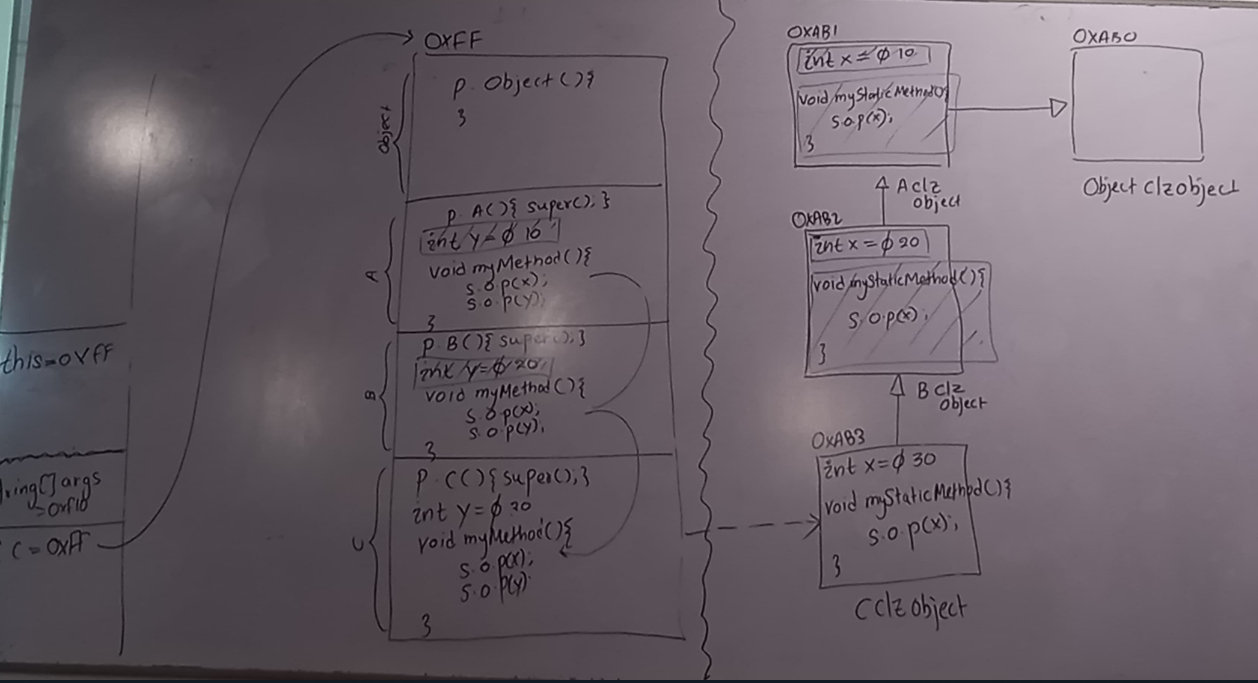 this=0xFF
String[]args
=0xf10
C=0xFF
0XFF
Object
p. Object(){
}
A
p. A(){ super(); }
int y=0 10
void myMethod(){
s.o.p(x);
s.o.p(y);
}
B
p. B(){ super(); }
int y=0 20
void myMethod(){
s.o.p(x);
s.o.p(y);
}
C
p. C(){ super(); }
int y=0 30
void myMethod(){
s.o.p(x);
s.o.p(y)
}
0XAB1
int x=0 10
void myStaticMethod()
s.o.p(x);
}
A clz
object
0XAB0
Object clzobject
0XAB2
int x=0 20
void myStaticMethod(){
s.o.p(x);
}
B clz
object
0XAB3
int x=0 30
void myStaticMethod(){
s.o.p(x);
}
C clz object